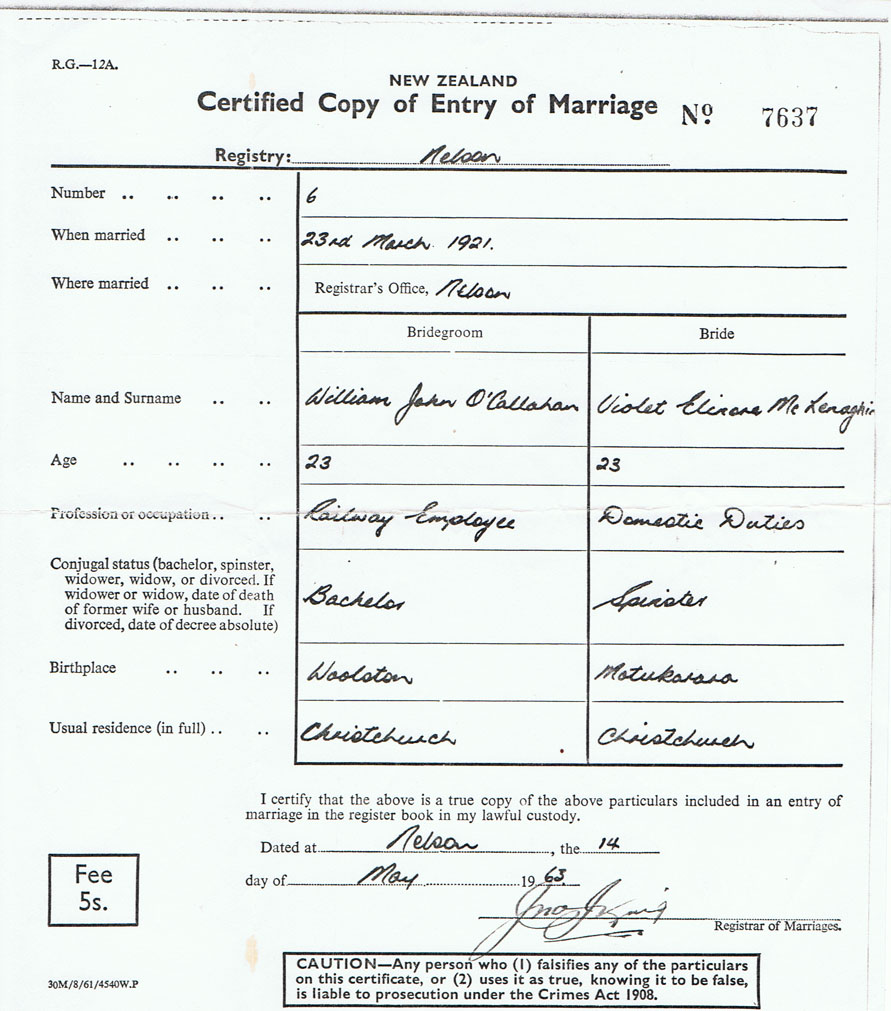 R.G.—12A.
NEW ZEALAND
Certified Copy of Entry of Marriage Nº 7637
Registry: Nelson
Number .. .. .. .. 6
When married .. .. .. 23rd March 1921.
Where married .. .. .. Registrar's Office, Nelson
Bridegroom Bride
Name and Surname .. .. William John O'Callahan Violet Elinora McLenaghin
Age .. .. .. .. 23 23
Profession or occupation .. .. Railway Employee Domestic Duties
Conjugal status (bachelor, spinster,
widower, widow, or divorced. If
widower or widow, date of death
of former wife or husband. If
divorced, date of decree absolute) Bachelor Spinster
Birthplace .. .. .. Woolston Motukarara
Usual residence (in full) .. .. Christchurch Christchurch
I certify that the above is a true copy of the above particulars included in an entry of
marriage in the register book in my lawful custody.
Dated at Nelson, the 14
day of May 1963.
Registrar of Marriages.
Fee
5s.
CAUTION—Any person who (1) falsifies any of the particulars
on this certificate, or (2) uses it as true, knowing it to be false,
is liable to prosecution under the Crimes Act 1908.
30M/8/61/4540W.P